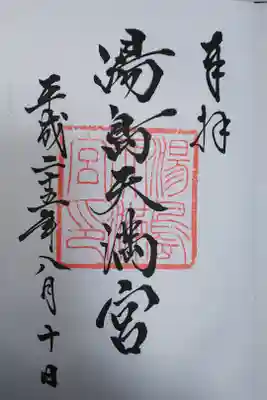 奉拝
湯島天満宮
平成二十五年八月十日